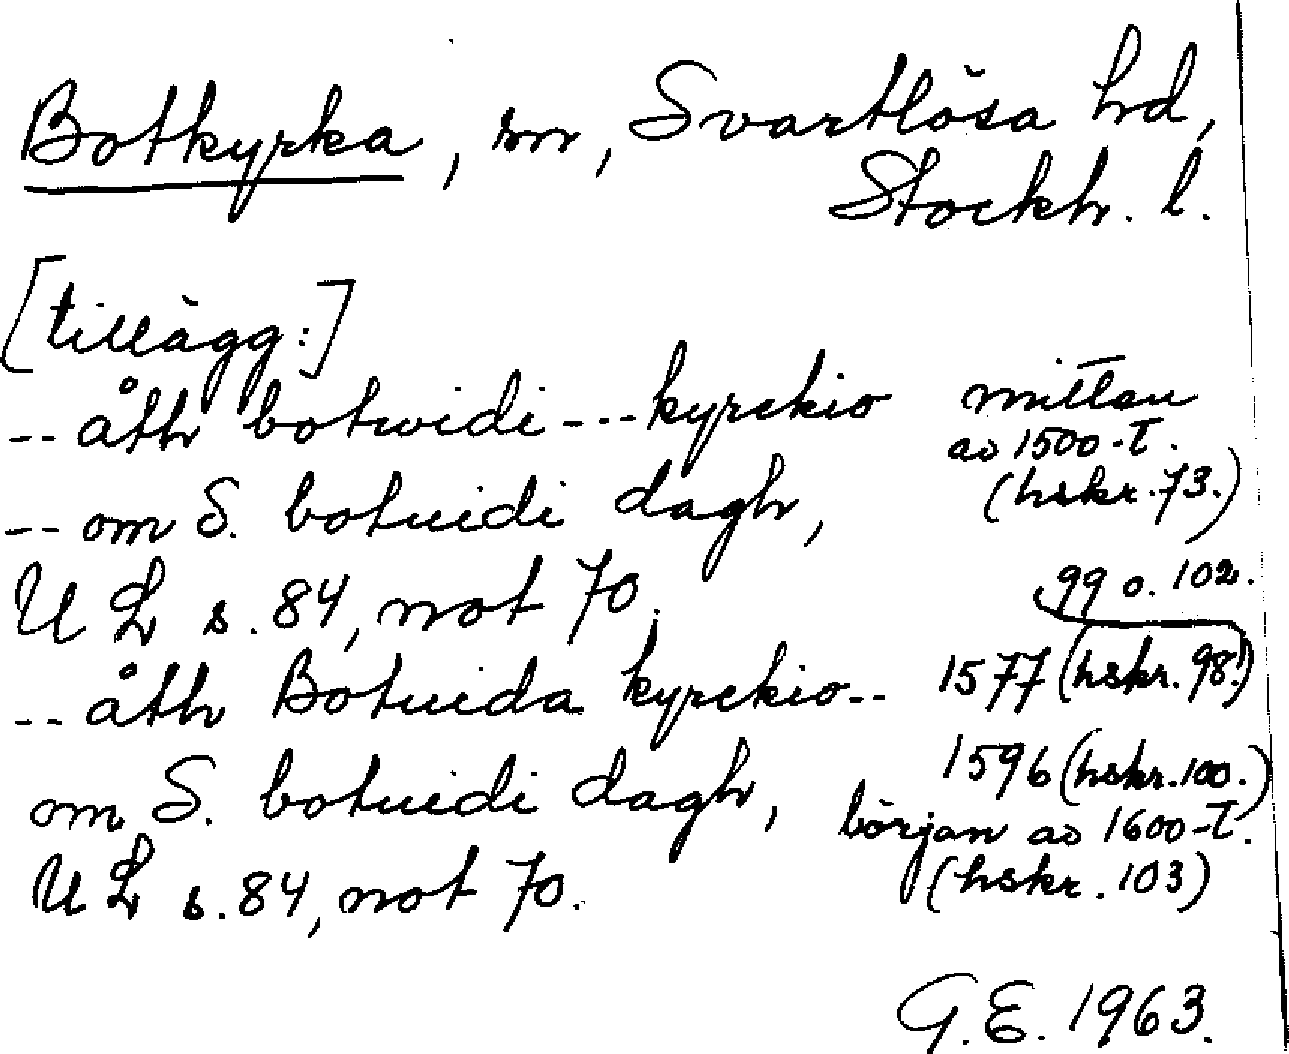 Botkyrka, sn, Svartlösa hd,
Stockh. l.
[tillägg:]
-- åth botwidi --- kyrckio mitten
av 1500-t.
(hskr. 73.)
-- om S. botuidi dagh,
UL s. 84, not 70.
99 o. 102.
-- åth Botuida kyrckio -- 1577 (hskr. 98.)
1596 (hskr. 100.)
om S. botuidi dagh, början av 1600-t.
UL s. 84, not 70. (hskr. 103)
G.E. 1963.